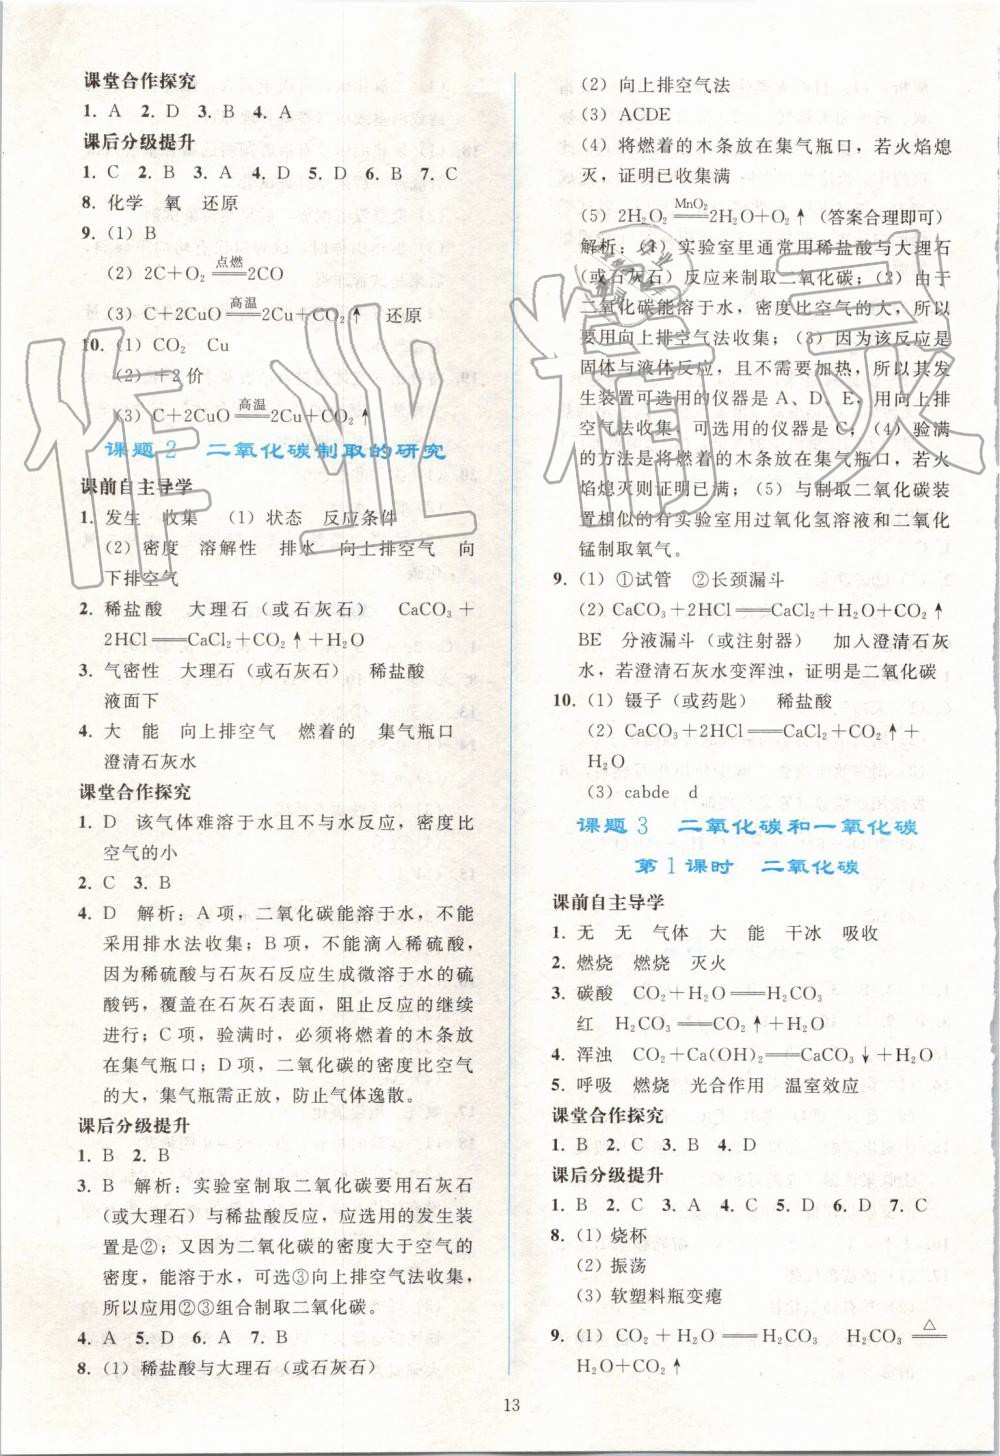 课堂合作探究
1. A 2. D 3. B 4. A
课后分级提升
1. C 2. B 3. A 4. D 5. D 6. B 7. C
8. 化学 氧 还原
9. (1) B
(2) 2C+O₂═点燃═2CO
(3) C+2CuO═高温═2Cu+CO₂↑ 还原
10. (1) CO₂ Cu
(2) +2价
(3) C+2CuO═高温═2Cu+CO₂↑
课题2 二氧化碳制取的研究
课前自主导学
1. 发生 收集 (1) 状态 反应条件
(2) 密度 溶解性 排水 向上排空气 向
下排空气
2. 稀盐酸 大理石(或石灰石) CaCO₃+
2HCl═CaCl₂+CO₂↑+H₂O
3. 气密性 大理石(或石灰石) 稀盐酸
液面下
4. 大 能 向上排空气 燃着的 集气瓶口
澄清石灰水
课堂合作探究
1. D 该气体难溶于水且不与水反应,密度比
空气的小
2. C 3. B
4. D 解析:A项,二氧化碳能溶于水,不能
采用排水法收集;B项,不能滴入稀硫酸,
因为稀硫酸与石灰石反应生成微溶于水的硫
酸钙,覆盖在石灰石表面,阻止反应的继续
进行;C项,验满时,必须将燃着的木条放
在集气瓶口;D项,二氧化碳的密度比空气
的大,集气瓶需正放,防止气体逸散。
课后分级提升
1. B 2. B
3. B 解析:实验室制取二氧化碳要用石灰石
(或大理石)与稀盐酸反应,应选用的发生装
置是②;又因为二氧化碳的密度大于空气的
密度,能溶于水,可选③向上排空气法收集,
所以应用②③组合制取二氧化碳。
4. A 5. D 6. A 7. D
8. (1) 稀盐酸与大理石(或石灰石)
(2) 向上排空气法
(3) ACDE
(4) 将燃着的木条放在集气瓶口,若火焰熄
灭,证明已收集满
(5) 2H₂O₂═MnO₂═2H₂O+O₂↑(答案合理即可)
解析:(1) 实验室里通常用稀盐酸与大理石
(或石灰石)反应来制取二氧化碳;(2) 由于
二氧化碳能溶于水,密度比空气的大,所以
要用向上排空气法收集;(3) 因为该反应是
固体与液体反应,且不需要加热,所以其发
生装置可选用的仪器是A、D、E,用向上排
空气法收集,可选用的仪器是C;(4) 验满
的方法是将燃着的木条放在集气瓶口,若火
焰熄灭则证明已满;(5) 与制取二氧化碳装
置相似的有实验室用过氧化氢溶液和二氧化
锰制取氧气。
9. (1) ①试管 ②长颈漏斗
(2) CaCO₃+2HCl═CaCl₂+H₂O+CO₂↑
BE 分液漏斗(或注射器) 加入澄清石灰
水,若澄清石灰水变浑浊,证明是二氧化碳
10. (1) 镊子(或药匙) 稀盐酸
(2) CaCO₃+2HCl═CaCl₂+CO₂↑+
H₂O
(3) cabde d
课题3 二氧化碳和一氧化碳
第1课时 二氧化碳
课前自主导学
1. 无 无 气体 大 能 干冰 吸收
2. 燃烧 燃烧 灭火
3. 碳酸 CO₂+H₂O═H₂CO₃
红 H₂CO₃═CO₂↑+H₂O
4. 浑浊 CO₂+Ca(OH)₂═CaCO₃↓+H₂O
5. 呼吸 燃烧 光合作用 温室效应
课堂合作探究
1. B 2. C 3. B 4. D
课后分级提升
1. B 2. C 3. A 4. C 5. D 6. D 7. C
8. (1) 烧杯
(2) 振荡
(3) 软塑料瓶变瘪
9. (1) CO₂+H₂O═H₂CO₃ H₂CO₃═△═
H₂O+CO₂↑
13
作业精灵